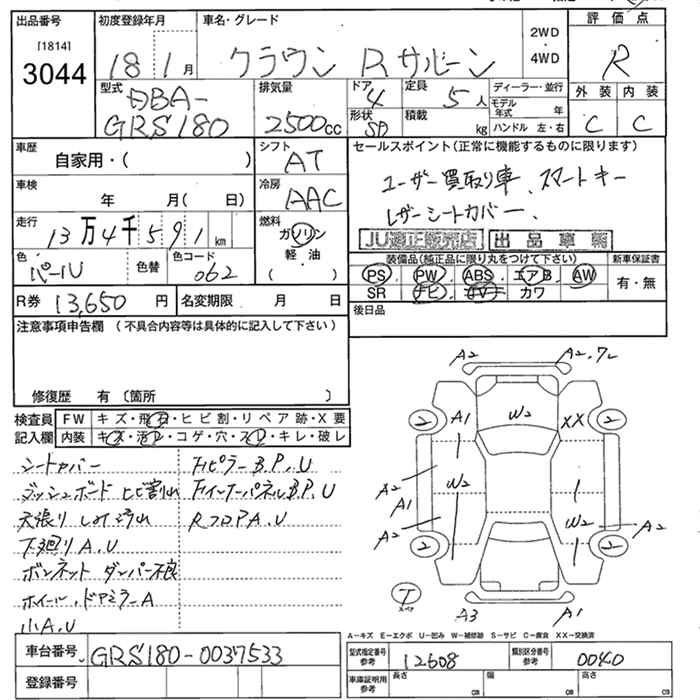 出品番号
[1814]
3044
初度登録年月
18 1月
車名・グレード
クラウン Rサルーン
2WD
・
4WD
評価点
R
外装 内装
C C
型式
DBA-
GRS180
排気量
2500cc
ドア
4
形状
SD
定員
5人
積載
kg
ディーラー・並行
モデル年式 年
ハンドル 左・右
車歴
自家用・( )
シフト
AT
車検
年 月( 日)
冷房
AAC
走行
13万4千591km
燃料
ガソリン
軽・油
( )
色
パールU
色替
色コード
062
R券 13,650円
名変期限 月 日
セールスポイント(正常に機能するものに限ります)
ユーザー買取り車、スマートキー
レザーシートカバー、
JU適正販売店 出品車輌
装備品(純正品に限り丸をつけて下さい)
PS・PW・ABS・エアB・AW
SR ナビ・TV カワ
新車保証書
有・無
後日品
注意事項申告欄 (不具合内容等は具体的に記入して下さい)
修復歴 有〔箇所 〕
検査員
記入欄
FW キズ・飛石・ヒビ割・リペア跡・X要
内装 キズ・汚レ・コゲ・穴・スレ・キレ・破レ
シートカバー
ダッシュボード ヒビ割れ
天張り しみ汚れ
下廻りA.U
ボンネット ダンパー不良
ホイール、ドアミラーA
小A.U
FピラーB.P.U
FインナーパネルB.P.U
RフロアA.U
A2 A2.フレ
2 A1 W2 XX 2
A2 W2
A1
A2 W2 A2
2 2
T
スペア
A3 A1
A-キズ E-エクボ U-凹み W-補修跡 S-サビ C-腐食 XX-交換済
車台番号 GRS180-0037533
登録番号
型式指定番号
参考
12608
類別区分番号
参考
0040
車庫証明用
参考
長さ cm 幅 cm 高さ cm